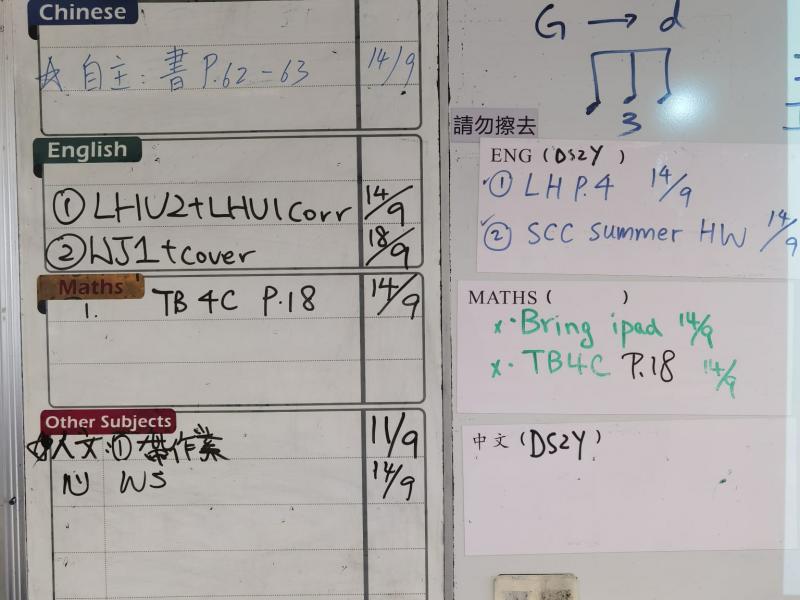 Chinese
☆ 自主: 書 P.62-63 14/9
English
① LHU2+LHU1 Corr 14/9
② WJ1+cover 18/9
Maths
1. TB 4C P.18 14/9
Other Subjects
人文 ① 帶作業 11/9
心 WS 14/9
G → d
3
請勿擦去
ENG (DS2Y)
① LH P.4 14/9
② SCC summer HW 14/9
MATHS ( )
x · Bring ipad 14/9
x · TB4C P.18 14/9
中文 (DS2Y)